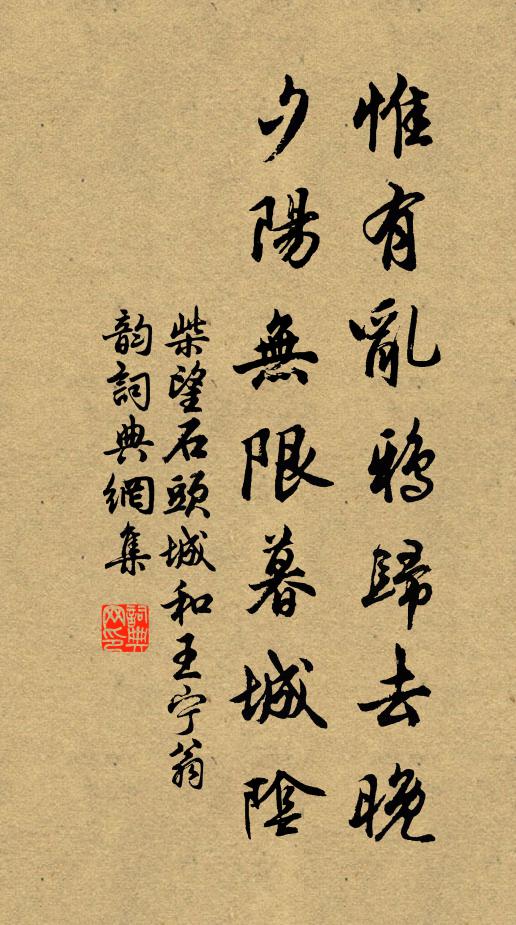 惟有亂鴉歸去晚
夕陽無限暮城陰
柴望石頭城和王宁翁
韵詞典網集
詞典網印